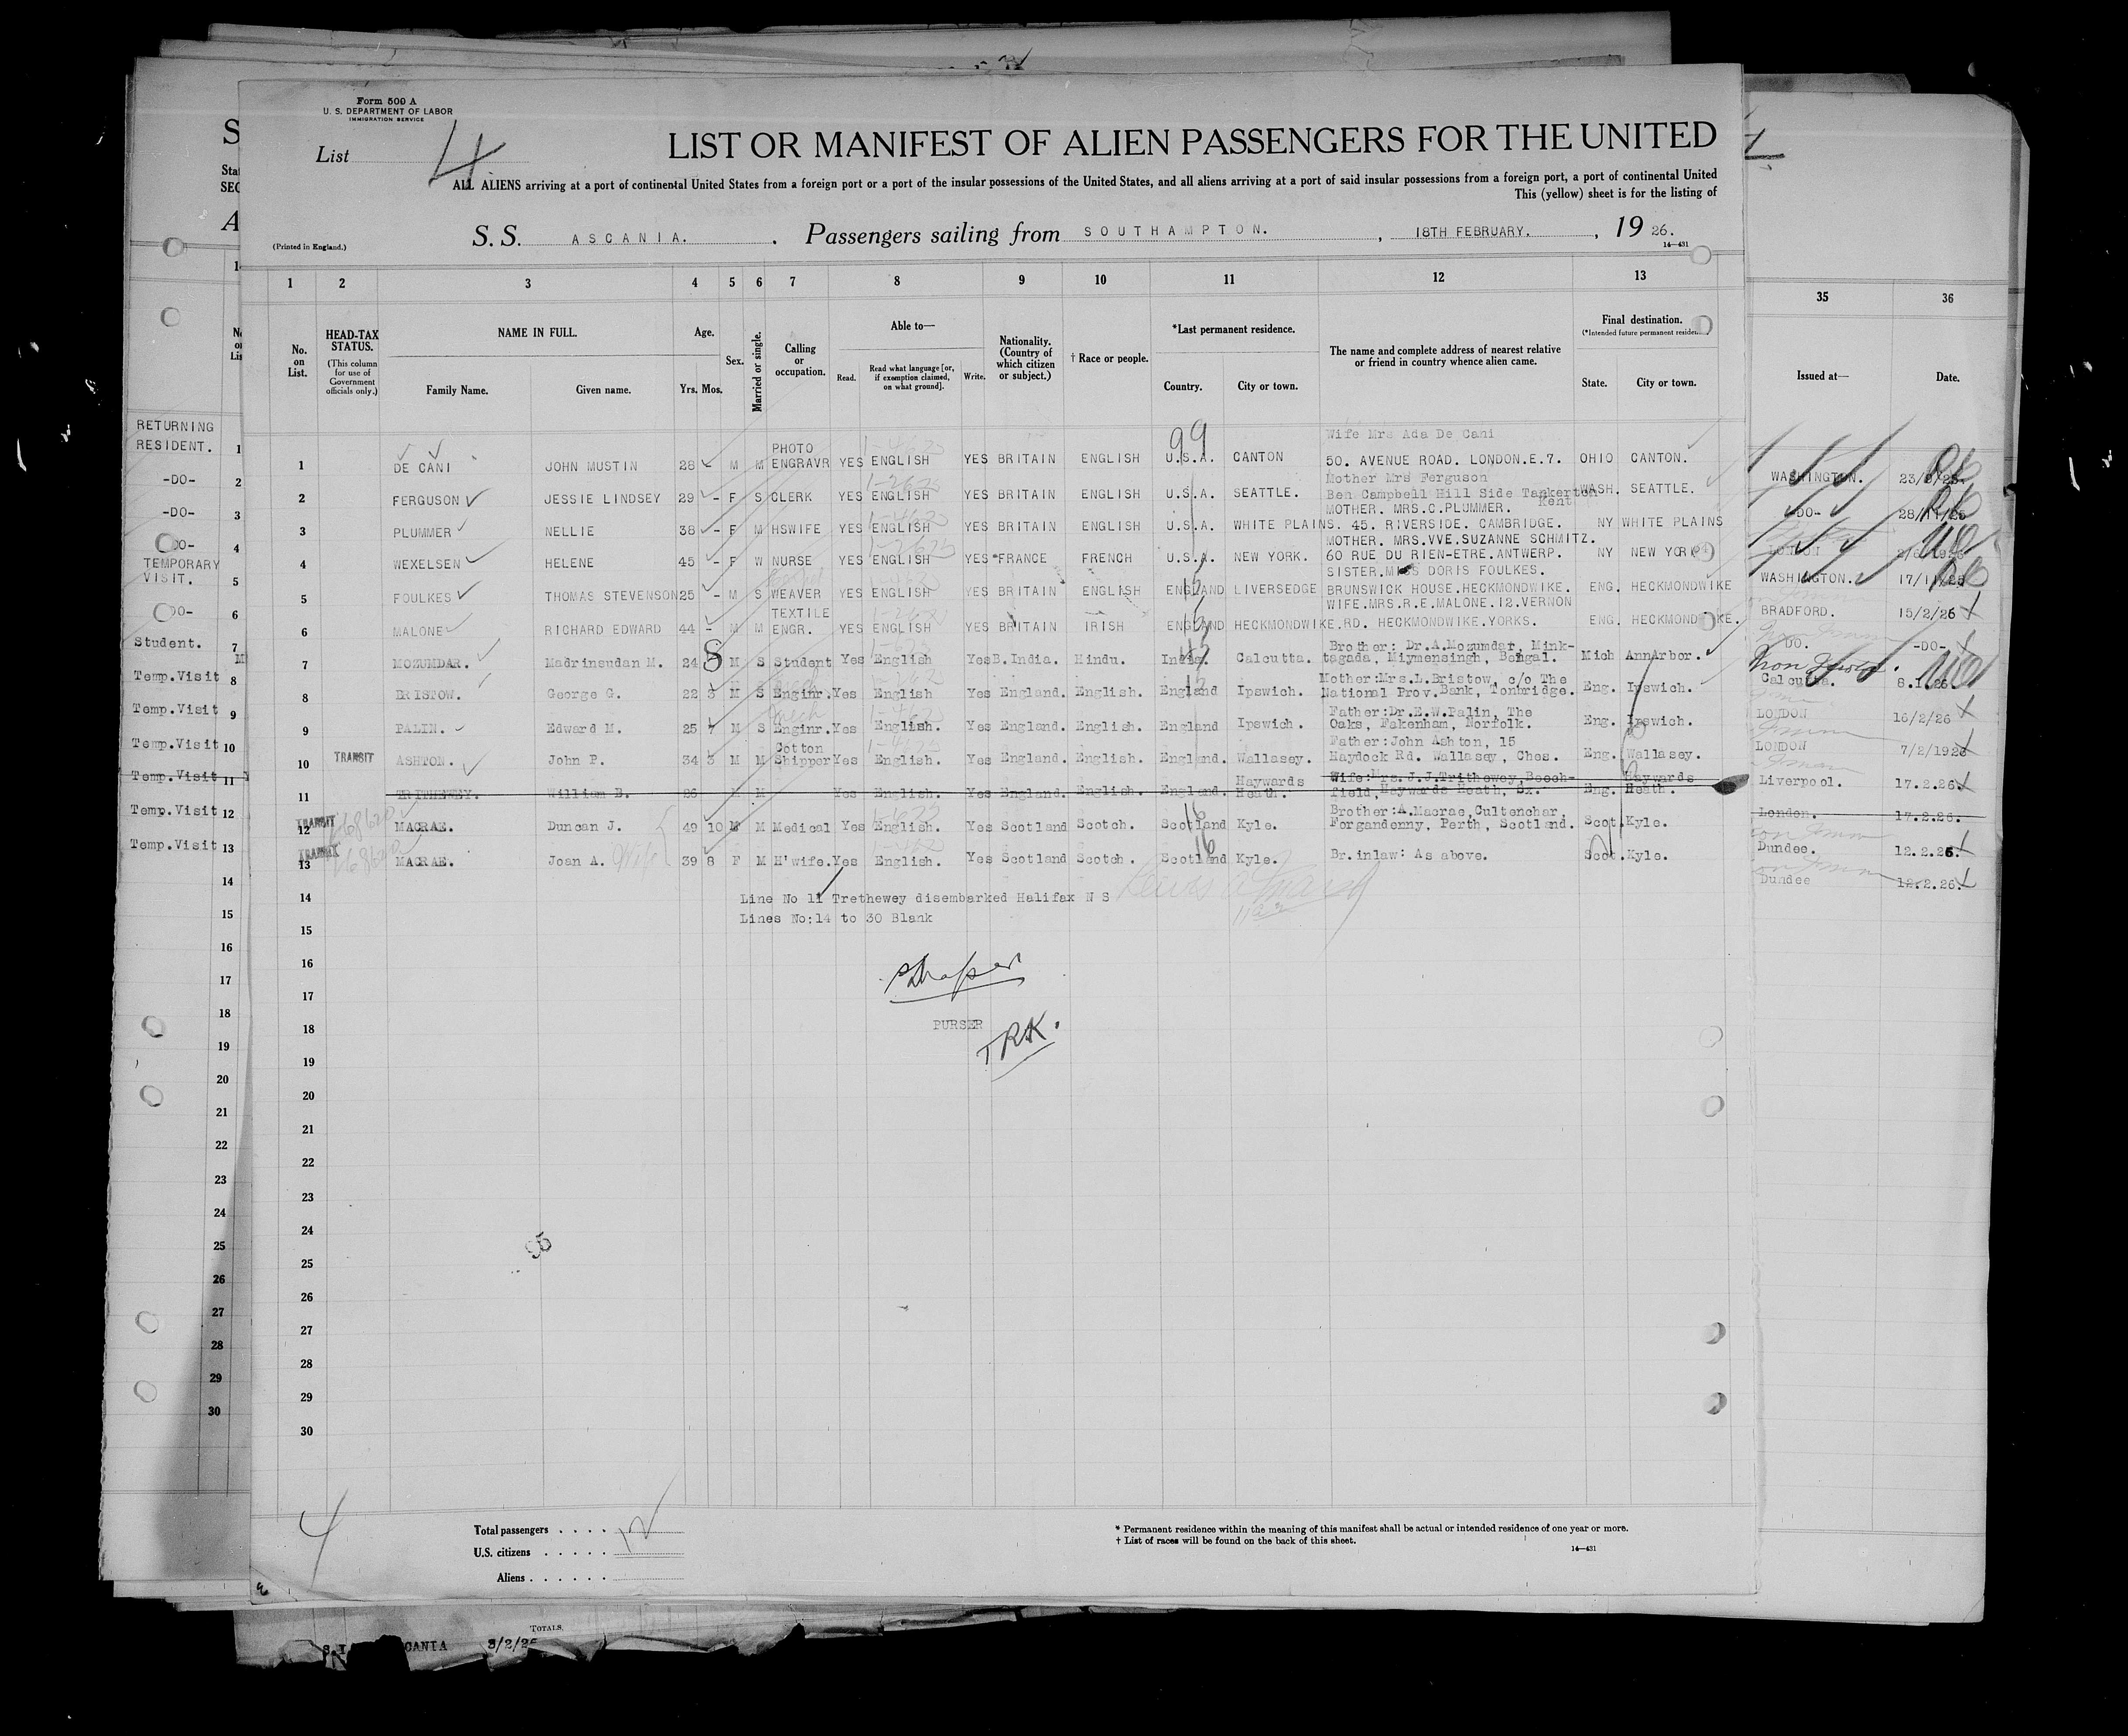 Form 500 A
U. S. DEPARTMENT OF LABOR
IMMIGRATION SERVICE
List 4
LIST OR MANIFEST OF ALIEN PASSENGERS FOR THE UNITED
ALL ALIENS arriving at a port of continental United States from a foreign port or a port of the insular possessions of the United States, and all aliens arriving at a port of said insular possessions from a foreign port, a port of continental United
This (yellow) sheet is for the listing of
(Printed in England.)
S. S. ASCANIA. , Passengers sailing from SOUTHAMPTON. , 18TH FEBRUARY. , 19 26.
14—431
1 2 3 4 5 6 7 8 9 10 11 12 13 35 36
No. on List.
HEAD-TAX STATUS.
(This column for use of Government officials only.)
NAME IN FULL.
Family Name. Given name.
Age.
Yrs. Mos.
Sex.
Married or single.
Calling or occupation.
Able to—
Read. Read what language [or, if exemption claimed, on what ground]. Write.
Nationality. (Country of which citizen or subject.)
† Race or people.
*Last permanent residence.
Country. City or town.
The name and complete address of nearest relative or friend in country whence alien came.
Final destination.
(*Intended future permanent
State. City or town.
Issued at— Date.
RETURNING RESIDENT. 1
-DO- 2
-DO- 3
4
TEMPORARY VISIT. 5
6
Student. 7
Temp.Visit 8
Temp.Visit 9
Temp.Visit 10
Temp.Visit 11
Temp.Visit 12
Temp.Visit 13
99
Wife Mrs Ada De Cani
1 DE CANI JOHN MUSTIN 28 - M M PHOTO ENGRAVR YES ENGLISH YES BRITAIN ENGLISH U.S.A. CANTON 50. AVENUE ROAD. LONDON.E.7. OHIO CANTON.
Mother Mrs Ferguson
2 FERGUSON JESSIE LINDSEY 29 - F S CLERK YES ENGLISH YES BRITAIN ENGLISH U.S.A. SEATTLE. Ben Campbell Hill Side Tankerton Kent WASH. SEATTLE.
MOTHER. MRS.C.PLUMMER.
3 PLUMMER NELLIE 38 - F M HSWIFE YES ENGLISH YES BRITAIN ENGLISH U.S.A. WHITE PLAINS. 45. RIVERSIDE. CAMBRIDGE. NY WHITE PLAINS
MOTHER. MRS.VVE.SUZANNE SCHMITZ.
4 WEXELSEN HELENE 45 - F W NURSE YES ENGLISH YES *FRANCE FRENCH U.S.A. NEW YORK. 60 RUE DU RIEN-ETRE.ANTWERP. NY NEW YORK
SISTER.MISS DORIS FOULKES.
5 FOULKES THOMAS STEVENSON 25 - M S WEAVER YES ENGLISH YES BRITAIN ENGLISH ENGLAND LIVERSEDGE BRUNSWICK HOUSE.HECKMONDWIKE. ENG. HECKMONDWIKE
WIFE.MRS.R.E.MALONE.12.VERNON
6 MALONE RICHARD EDWARD 44 - M M TEXTILE ENGR. YES ENGLISH YES BRITAIN IRISH ENGLAND HECKMONDWIKE.RD. HECKMONDWIKE.YORKS. ENG. HECKMONDWIKE.
Brother: Dr.A.Mozumdar, Mink-
7 MOZUMDAR. Madrinsudan M. 24 8 M S Student Yes English Yes B.India. Hindu. India. Calcutta. tagada, Miymensingh, Bengal. Mich AnnArbor.
Mother:Mrs.L.Bristow, c/o The
8 BRISTOW. George G. 22 M S Enginr. Yes English Yes England. English. England Ipswich. National Prov.Bank, Tonbridge. Eng. Ipswich.
Father:Dr.E.W.Palin, The
9 PALIN. Edward M. 25 7 M S Enginr. Yes English. Yes England. English. England Ipswich. Oaks, Fakenham, Norfolk. Eng. Ipswich.
Father:John Ashton, 15
10 TRANSIT ASHTON. John P. 34 3 M M Cotton Shipper Yes English. Yes England. English. England. Wallasey. Haydock Rd. Wallasey, Ches. Eng. Wallasey.
Wife:Mrs.J.J.Trithewey,Beech-
11 TRITHEWEY. William B. 26 M M Yes English. Yes England. English. England. Haywards Heath. field,Haywards Heath, Sx. Eng. Haywards Heath.
Brother:A.Macrae,Cultenchar,
12 TRANSIT MACRAE. Duncan J. 49 10 M M Medical Yes English. Yes Scotland Scotch. Scotland Kyle. Forgandenny, Perth, Scotland. Scot. Kyle.
13 TRANSIT MACRAE. Joan A. Wife 39 8 F M H'wife. Yes English. Yes Scotland Scotch. Scotland Kyle. Br.inlaw: As above. Scot. Kyle.
WASHINGTON.
-DO- 28/11/25
LONDON
WASHINGTON. 17/11/25
BRADFORD. 15/2/26
DO. -DO-
Calcutta. 8.1.26.
LONDON 16/2/26
LONDON 7/2/1926
Liverpool. 17.2.26
London. 17.2.26.
Dundee. 12.2.26.
Dundee 12.2.26.
14
Line No 11 Trethewey disembarked Halifax N S
Lines No:14 to 30 Blank
15
16
17
18
PURSER
TRK.
19
20
21
22
23
24
25
26
27
28
29
30
95
4
Total passengers . . . . 12
U.S. citizens . . . . .
Aliens . . . . . .
* Permanent residence within the meaning of this manifest shall be actual or intended residence of one year or more.
† List of races will be found on the back of this sheet.
14—431
TOTALS.